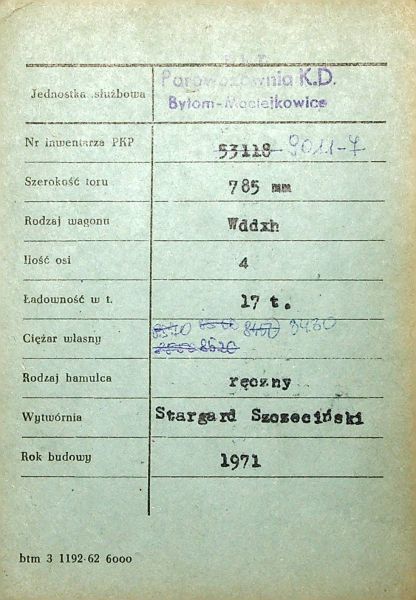 Jednostka służbowa Parowozownia K.D.
Bytom-Maciejkowice
Nr inwentarza PKP 53118 9011-7
Szerokość toru 785 mm
Rodzaj wagonu Wddxh
Ilość osi 4
Ładowność w t. 17 t.
Ciężar własny 8520 3430
Rodzaj hamulca ręczny
Wytwórnia Stargard Szczeciński
Rok budowy 1971
btm 3 1192-62 6000